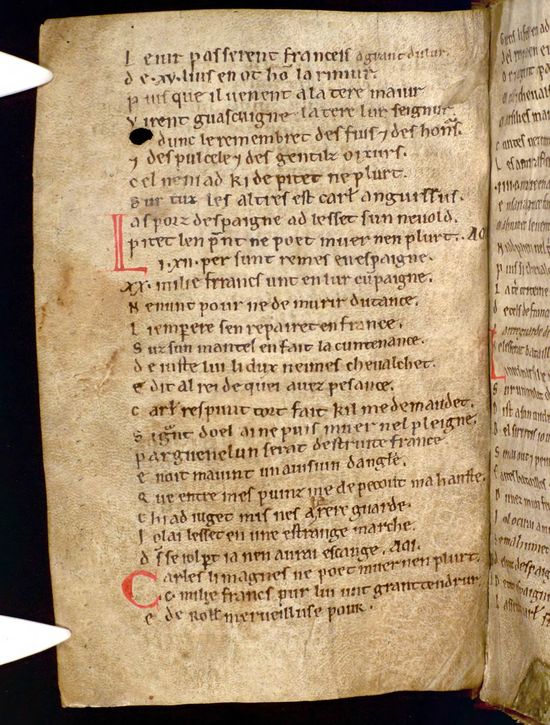 Le iur passerent franceis a grant dulur.
de .xv. liues en ot hō la rimur.
puis que il venent a la tere maiur
virent guascuigne la tere lur seignur
dunc le remembret des fius ⁊ des honr̄s.
⁊ des pulcele ⁊ des gentilz oixurs.
cel nen i ad ki de pitet ne plurt.
Sur tuz les altres est carł anguissus.
As porz despaigne ad lesset sun neuold.
pitet len p̄nt ne poet muer nen plurt. AOI
Li .xii. per sunt remes en espaigne.
.xx. milie francs unt en lur cūpaigne.
Nen unt pour ne de murir dutance.
Li empere sen repairet en france.
Suz sun mantel en fait la cuntenance.
de iuste lui li dux neimes cheualchet.
e dit al rei de quei auez pesance.
carł respunt tort fait kil me demandet.
Si gn̄t doel ai ne puis muer nel pleigne.
par guenelun serat destruite france
e noit mauint un auisiun dangle.
que entre mes puinz me depecout ma hanste.
chi ad iuget mis nes a rere guarde.
Iolai lesset en une estrange marche.
ds̄ se iol ꝑt ia nen aurai escange. AOI.
Carles li magnes ne poet muer nen plurt.
.c. milie francs pur lui unt grant tendrur
e de Rołł merueilluse pour.